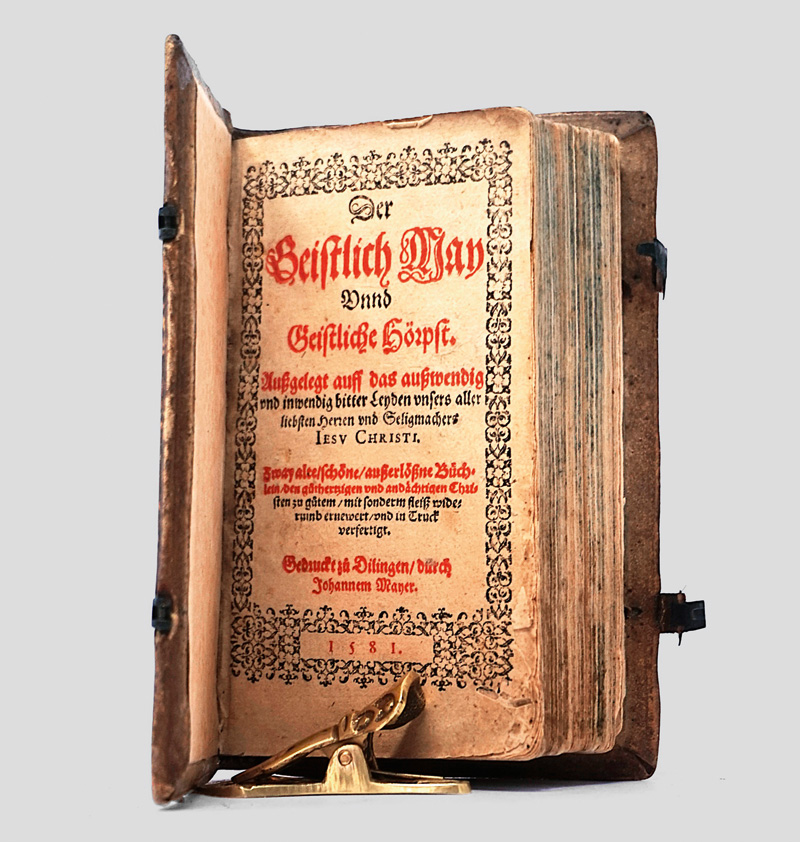 Der
Geistlich May
Vnnd
Geistliche Hörpst.
Außgelegt auff das außwendig
vnd inwendig bitter Leyden vnsers aller
liebsten Herren vnd Seligmachers
IESV CHRISTI.
Zway alte/schöne/außerlößne Büch-
lein/den gůthertzigen vnd andächtigen Chri-
sten zu gůtem/mit sonderm fleiß wide-
rumb ernewert/vnd in Truck
verfertigt.
Gedruckt zů Dilingen/durch
Johannem Mayer.
1581.